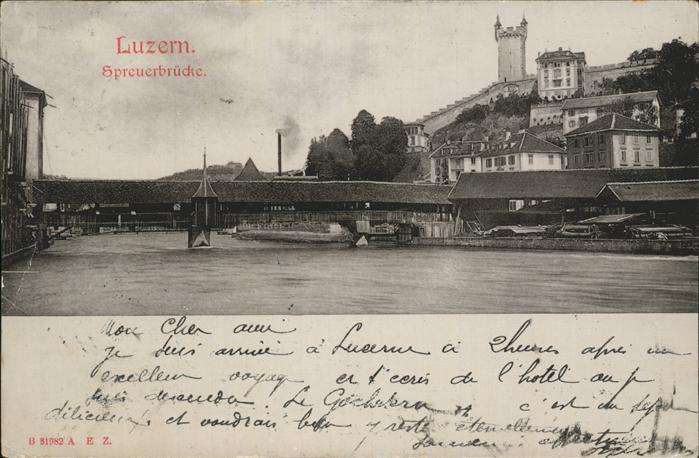 Luzern.
Spreuerbrücke.
Mon Cher ami
je suis arrivée à Lucerne à 2 heures après un
excellent voyage et t'ecris de l'hotel ou je
suis descendu Le c'est un sejour
délicieux et voudrais bien y reste éternellement
B 31982 A E Z.